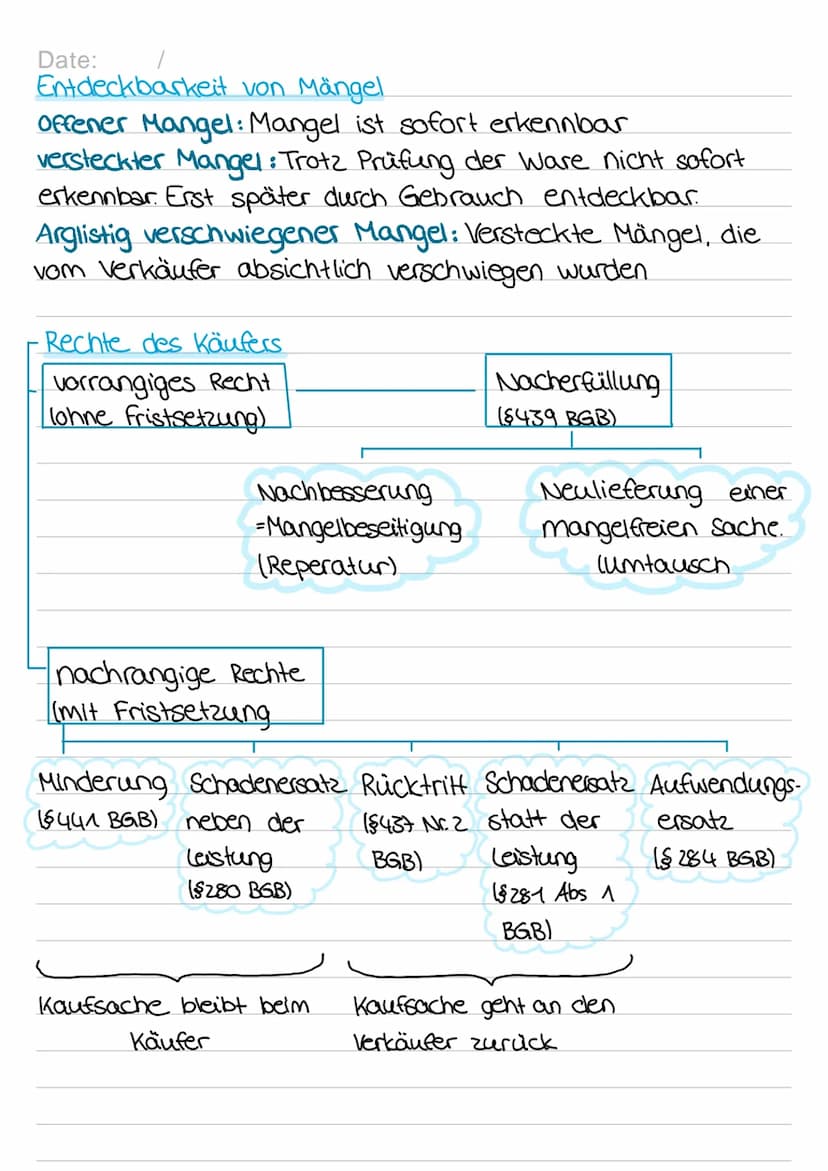 Date: /
Entdeckbarkeit von Mängel
Offener Mangel: Mangel ist sofort erkennbar
versteckter Mangel: Trotz Prüfung der Ware nicht sofort
erkennbar. Erst später durch Gebrauch entdeckbar.
Arglistig verschwiegener Mangel: Versteckte Mängel, die
vom Verkäufer absichtlich verschwiegen wurden
Rechte des Käufers
vorrangiges Recht
(ohne Fristsetzung)
Nacherfüllung
(§439 BGB)
Nachbesserung
=Mangelbeseitigung
(Reperatur)
Neulieferung einer
mangelfreien Sache.
(Umtausch
nachrangige Rechte
(mit Fristsetzung
Minderung
(§441 BGB)
Schadenersatz
neben der
Leistung
(§280 BGB)
Rücktritt
(§437 Nr. 2
BGB)
Schadenersatz
statt der
Leistung
(§281 Abs 1
BGB)
Aufwendungs-
ersatz
(§ 284 BGB)
Kaufsache bleibt beim
Käufer
Kaufsache geht an den
Verkäufer zurück